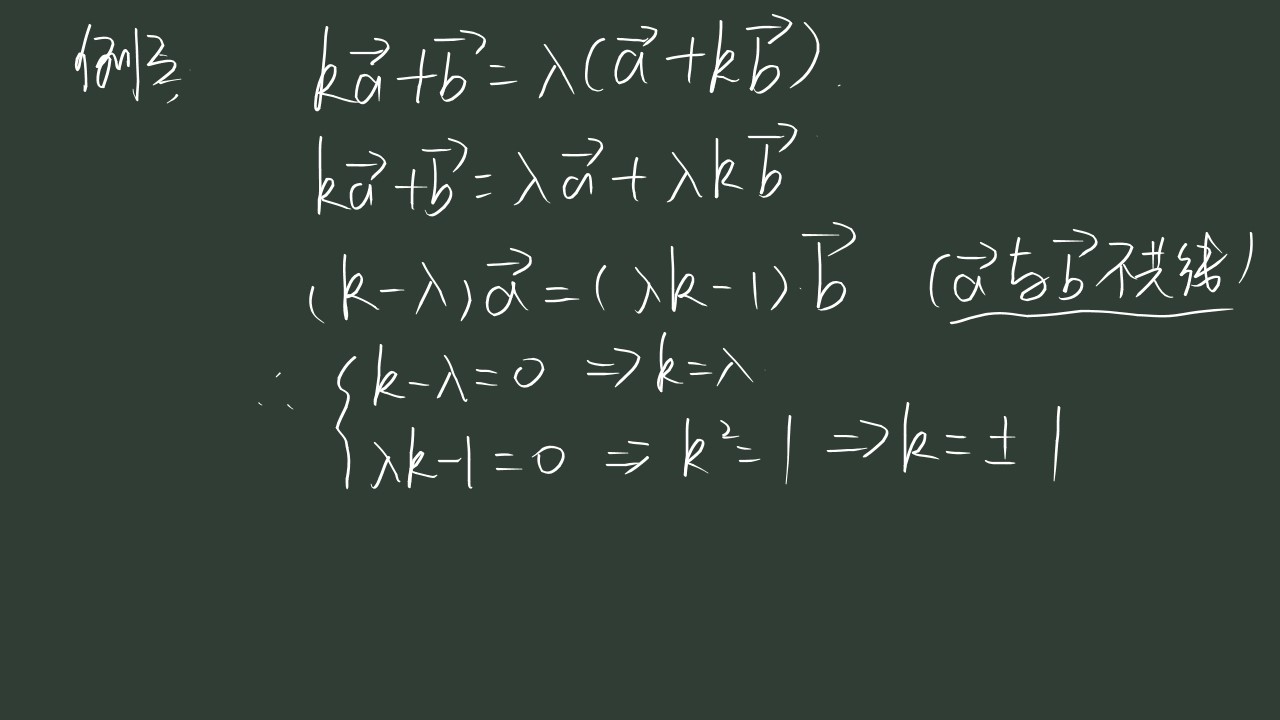 例3, k\vec{a}+\vec{b}=λ(\vec{a}+k\vec{b}).
k\vec{a}+\vec{b}=λ\vec{a}+λk\vec{b}
(k-λ)\vec{a}=(λk-1)·\vec{b} (\vec{a}与\vec{b}不共线)
∴ { k-λ=0 ⇒ k=λ
λk-1=0 ⇒ k²=1 ⇒ k=±1